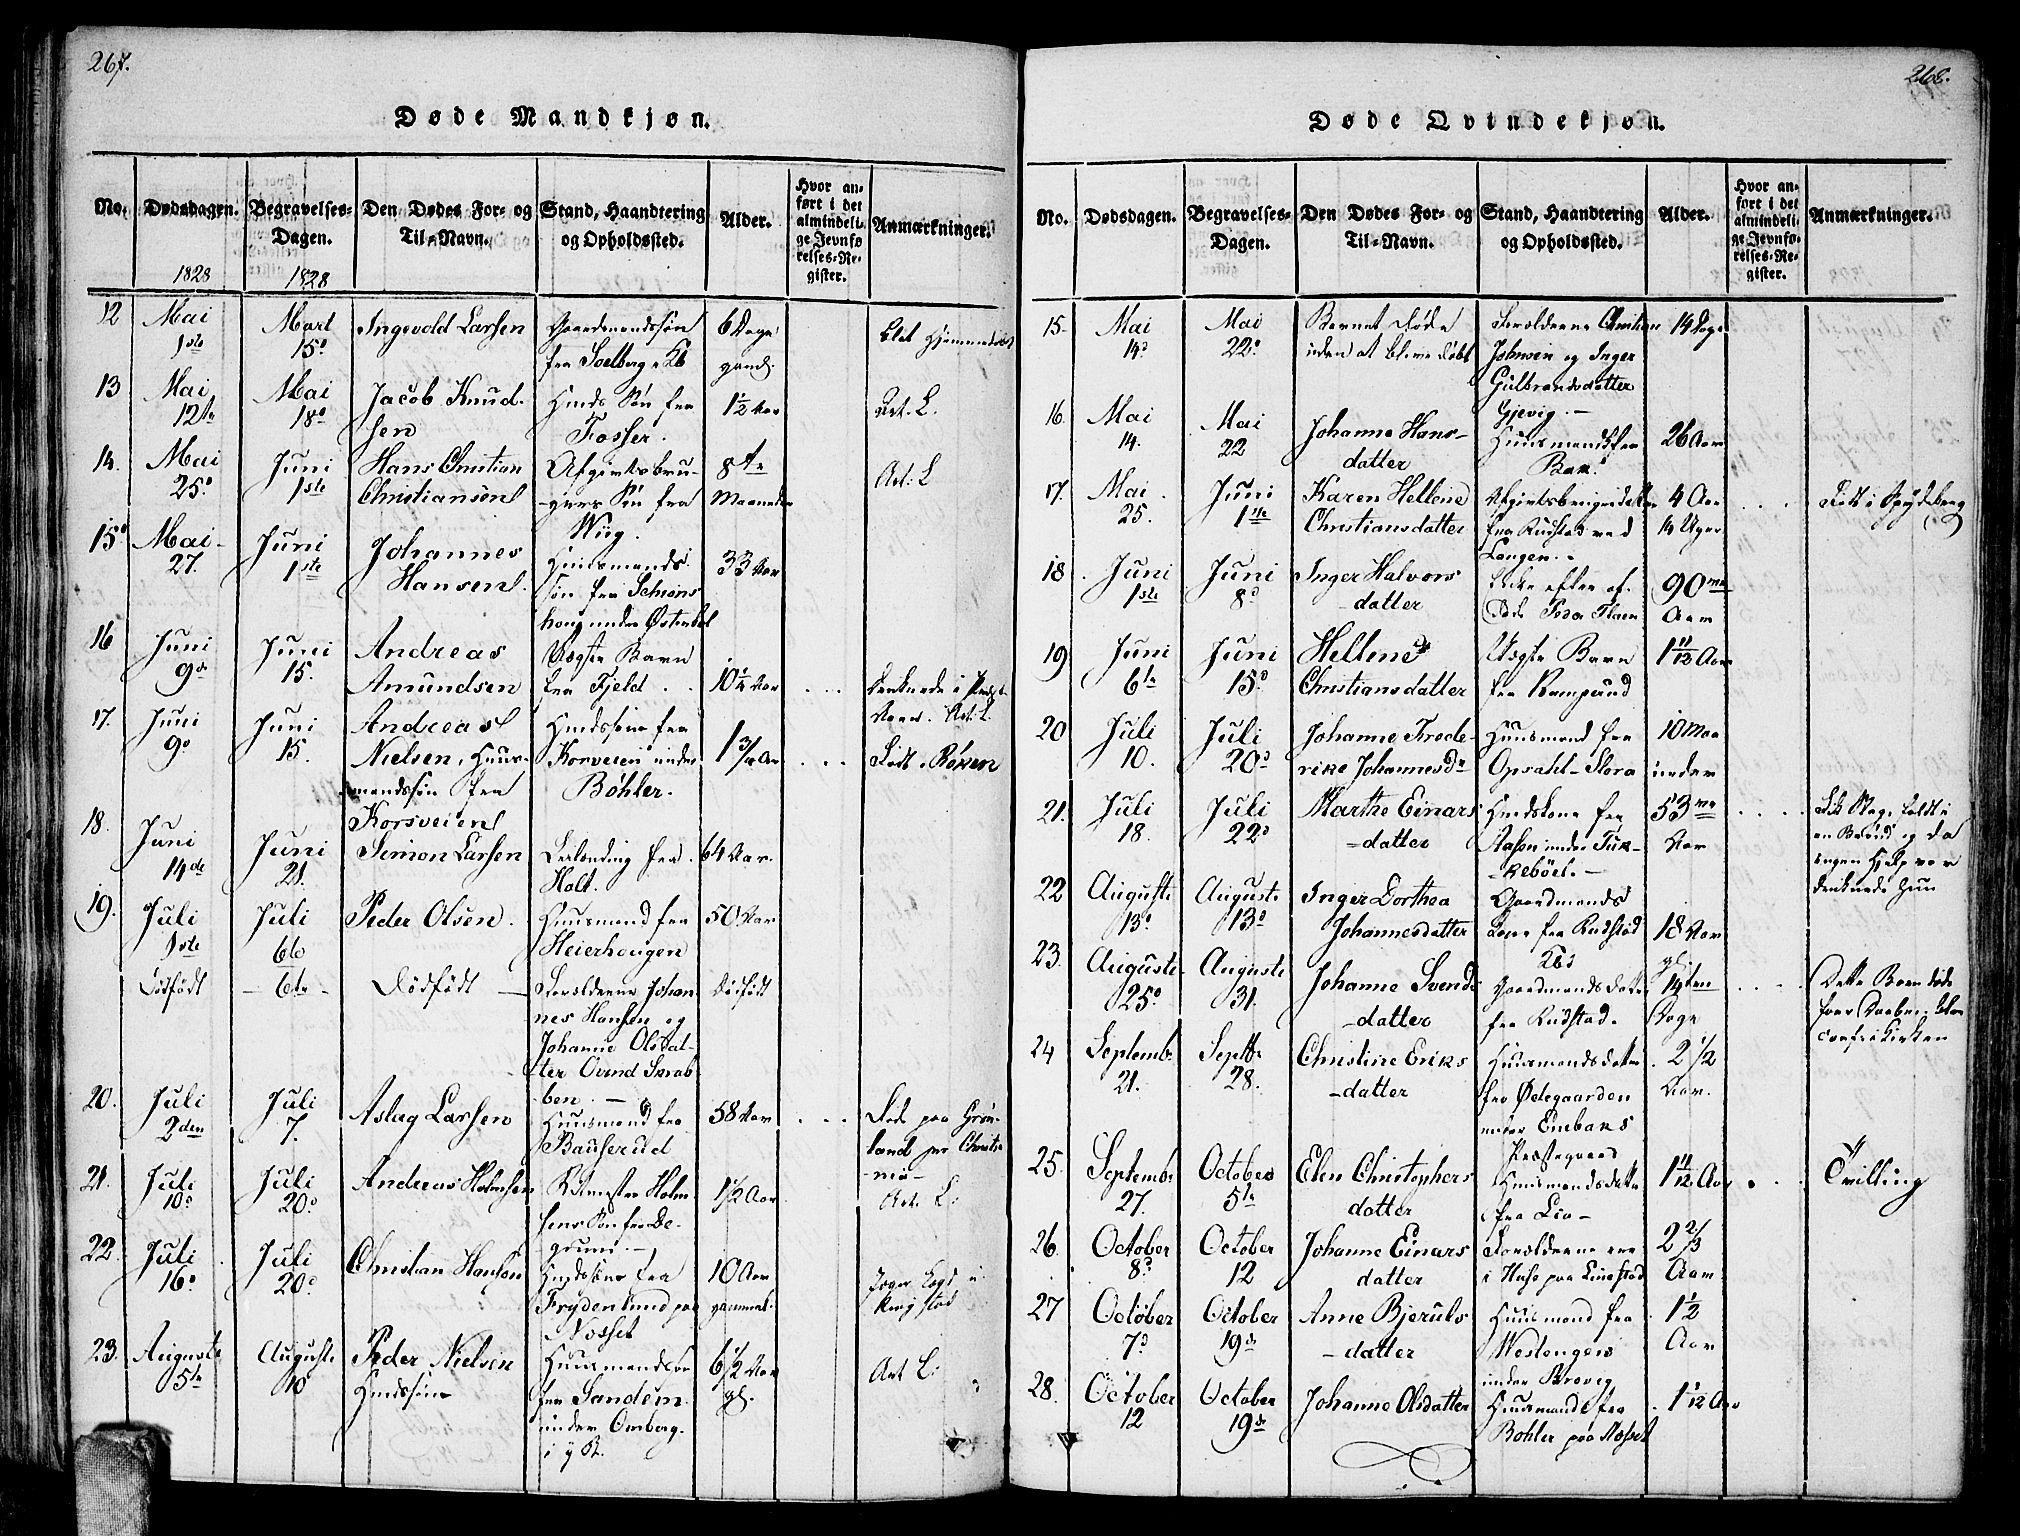 267.
Døde Mandkjøn.
No.
Dødsdagen.
Begravelses-
Dagen.
Den Dødes For- og
Til-Navn.
Stand, Haandtering
og Opholdssted.
Alder.
Hvor an-
ført i det
almindeli-
ge Jevnfø-
relses-Re-
gister.
Anmærkninger.
1828
1828
12 Mai 1ste
Mart 15d
Ingevold Larsen
Gaardmandssøn
fra Soelberg
6 Dage
gaml.
13 Mai 12te
Mai 18d
Jacob Knud-
sen
Hmds Søn fra
Fosser.
1 1/2 Aar
Att. L.
14. Mai 25d
Juni 1ste
Hans Christian
Christiansen
Afgivtsbru-
gers Søn fra
Wiig.
8te
Maaneder
Att: L
15d Mai 27.
Juni 1ste
Johannes
Hansen
Huusmands
søn fra
33 Aar
16 Juni 9de
Juni 15.
Andreas
Amundsen
Uægte Barn
fra Fjeld
10 1/4 Aar
Att: L.
17. Juni 9d
Juni 15.
Andreas
Nielsen, Huus-
mandssøn fra
Korsveien
Hmdssøn fra
Korsveien under
Bøhler.
1 3/4 Aar
Født i Røken
18. Juni 14de
Juni 21.
Simon Larsen
fra
Holt.
64 Aar.
19. Juli 1ste
Juli 6te
Peder Olsen.
Huusmand fra
Heierhougen
50 Aar
Dødfødt
6te
Dødfødt
Forældrene Johan-
nes Hansen og
Johanne Olsdat-
ter Øvind Skrab-
ben.
Dødfødt
20. Juli 2den
Juli 7.
Aslag Larsen
Huusmand fra
Bauserud
58 Aar
Døde paa Grøn-
land per Christi-
nia
21. Juli 10d
Juli 20d
Andreas Holmsen
Holm
sens Søn fra De-
grum.
1 1/2 Aar
Att. L:
22. Juli 16d
Juli 20d
Christian Hansen
Hmdssøn fra
Frydenlund paa
Nosset
10 Aar
gammel.
23. Auguste 5te
Auguste 10
Peder Nielsen
Hmdssøn
Huusmandssøn
fra Sandem
under Omberg.
6 1/2 Aar
gl.
Att L:
268.
Døde Qvindekjøn.
No.
Dødsdagen.
Begravelses-
Dagen.
Den Dødes For- og
Til-Navn.
Stand, Haandtering
og Opholdssted.
Alder.
Hvor an-
ført i det
almindeli-
ge Jevnfø-
relses-Re-
gister.
Anmærkninger.
15. Mai 14d
Mai 22d
Barnet døde
uden at blive døbt
Forældrene Christian
Johnsen og Inger
Gulbrandsdatter
Gjevig.
14 Dage
16. Mai 14.
Mai 22
Johanne Hans-
datter
Huusmands fra
26 Aar
17. Mai 25.
Juni 1ste
Karen Hellene
Christiansdatter
fra Rudstad ved
Langen.
4 Aar
14 Uger
Født i Spydeberg
18 Juni 1ste
Juni 8d
Inger Halvors
-datter
Enke efter af-
døde
90
Aar
19 Juni 6te
Juni 15d
Hellene
Christiansdatter
Uægte Barn
fra Ramperud
1 11/12 Aar
20 Juli 10.
Juli 20d
Johanne Frede-
rike Johannesdr
Huusmand fra
Opsahl-Flora
10 Maa
neder
21. Juli 18.
Juli 22d
Marthe Einars
-datter
Hmdskone fra
Aasen under Tuk-
kebøel.
53
Aar
en Brønd og da
ingen Hjelp var
druknede hun
22 Auguste 13d
Auguste 13d
Inger Dorthea
Johannesdatter
Gaardmands
Kone fra Rudstad
18 Aar
gl.
23. Auguste 25d
Auguste 31.
Johanne Svends
-datter
Gaardmands Datter
fra Rudstad.
14ten
Dage
Dette Barn døde
før Daaben
24 Septemb. 21.
Septbr 28.
Christine Eriks
-datter
Huusmandsdatter
fra Ødegaarden
under Enebaks
Præstegaard
2 1/2
Aar.
25. Septembr 27.
October 5te
Elen Christophers
datter
Huusmandsdatter
fra Lia
1 11/12 Aar
Tvilling
26. October 8d
October 12
Johanne Einars
datter
Forældrene ere
i Huse paa
2 2/3
Aar
27 October 7d
October 19de
Anne Bjeruls
-datter
Huusmand fra
Westengen
under
1 1/2
Aar
28. October 12
October 19de
Johanne Olsdatter
Huusmands fra
Bohler paa Nosset
1 1/12 Aar